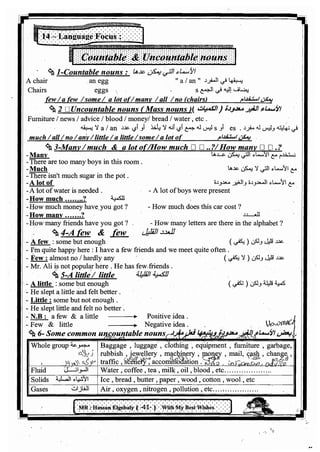 14 – Language Focus :
Countable & Uncountable nouns
1-Countable nouns : الأسماء التي يمكن عدها
A chair an egg " a / an " يسبقها في المفرد
Chairs eggs . s يضاف إليه في الجمع
few / a few / some / a lot of / many / all / no (chairs) يمكن استخدام
2 Uncountable nouns ( Mass nouns )( الأسماء الغير معدودة ( الكميات
Furniture / news / advice / blood / money/ bread / water , etc .
في نهايته وليس له مفرد . es أو s وليس له جمع أي أنه لا يأخذ a / an أو أي عدد لا يسبقه
much / all / no / any / little / a little / some / a lot of يمكن استخدام
3-Many / much & a lot of /How much ..?/ How many ..?
- Many نستخدم مع الأسماء التي يمكن عدها
-There are too many boys in this room .
- Much مع الأسماء التي لا يمكن عدها
-There isn't much sugar in the pot .
- A lot of مع الأسماء المعدودة والغير معدودة
-A lot of water is needed . - A lot of boys were present
-How much ........? للكمية
-How much money have you got ? - How much does this car cost ?
-How many .......? للعدد
-How many friends have you got ? - How many letters are there in the alphabet ?
4-A few & few للعدد القليل
- A few : some but enough عدد قليل ولكن ( يكفي )
- I'm quite happy here : I have a few friends and we meet quite often .
- Few : almost no / hardly any عدد قليل ولكن ( لا يكفي )
- Mr. Ali is not popular here . He has few friends .
5-A little / little للكمية القليلة
- A little : some but enough كمية قليلة ولكن ( تكفي )
- He slept a little and felt better .
- Little : some but not enough .
- He slept little and felt no better .
- N.B : a few & a little Positive idea .
- Few & little Negative idea .
6- Some common uncountable nouns بعض الأسماء الغير معدودة
Whole group مجموعة
Baggage , luggage , clothing , equipment , furniture , garbage,
rubbish , jewellery , machinery , money , mail, cash , change ,
traffic , scenery , accommodation
Fluid السوائل Water , coffee , tea , milk , oil , blood , etc....................
Solids الأشياء الصلبة Ice , bread , butter , paper , wood , cotton , wool , etc
Gases الغازات Air , oxygen , nitrogen , pollution , etc....................
MR : Hassan Elgebaly ( 41- ) With My Best Wishes